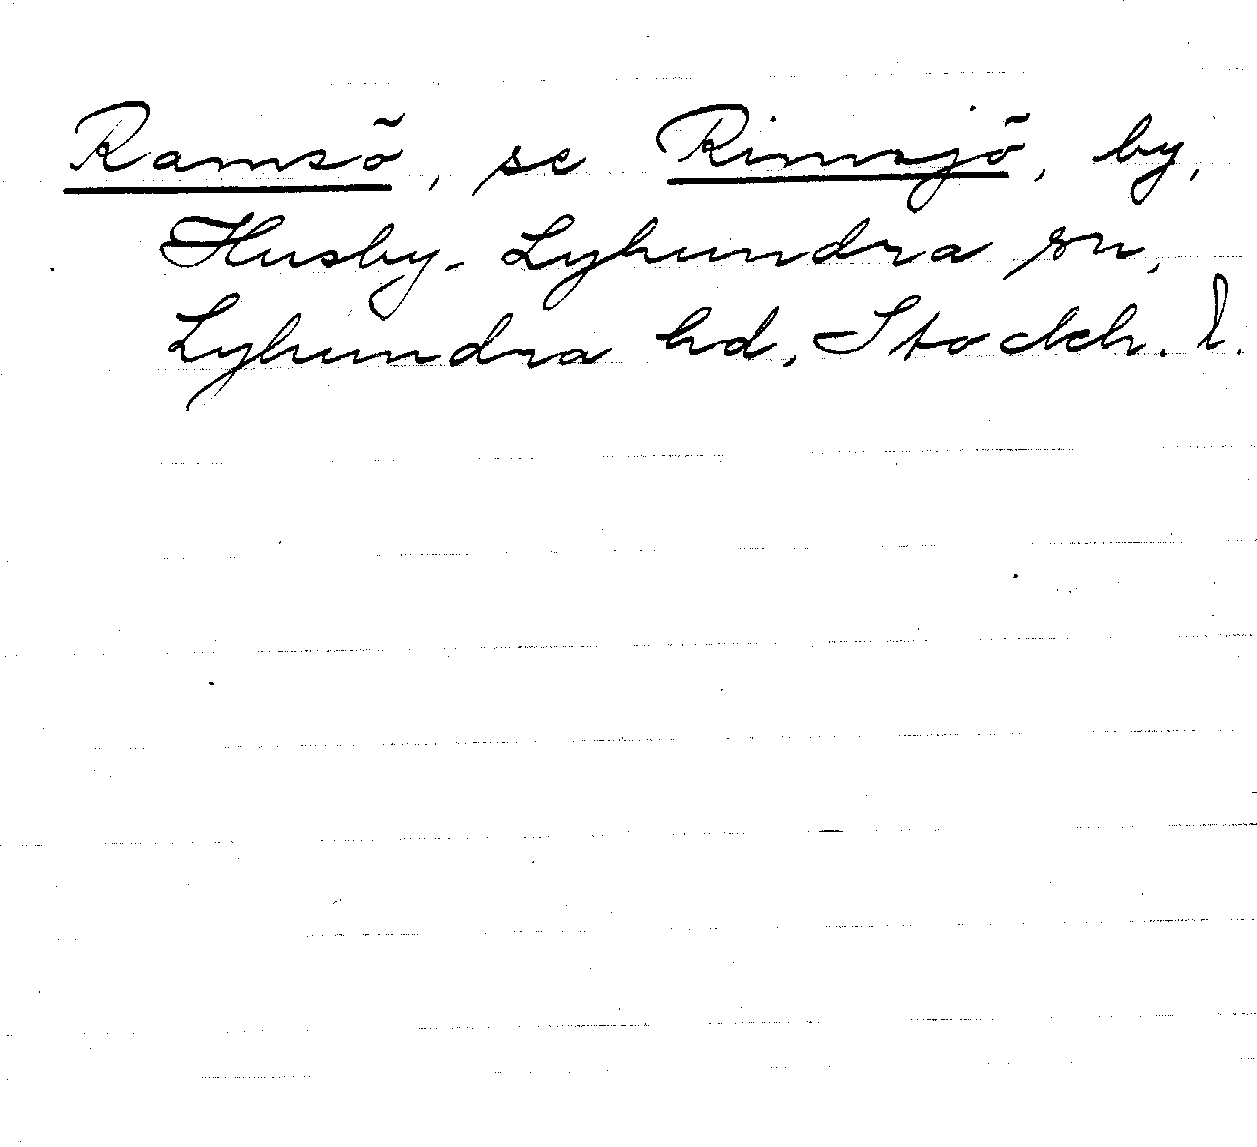 Ramsö, se Rimsjö, by,
Husby-Lyhundra sn,
Lyhundra hd, Stockh. l.